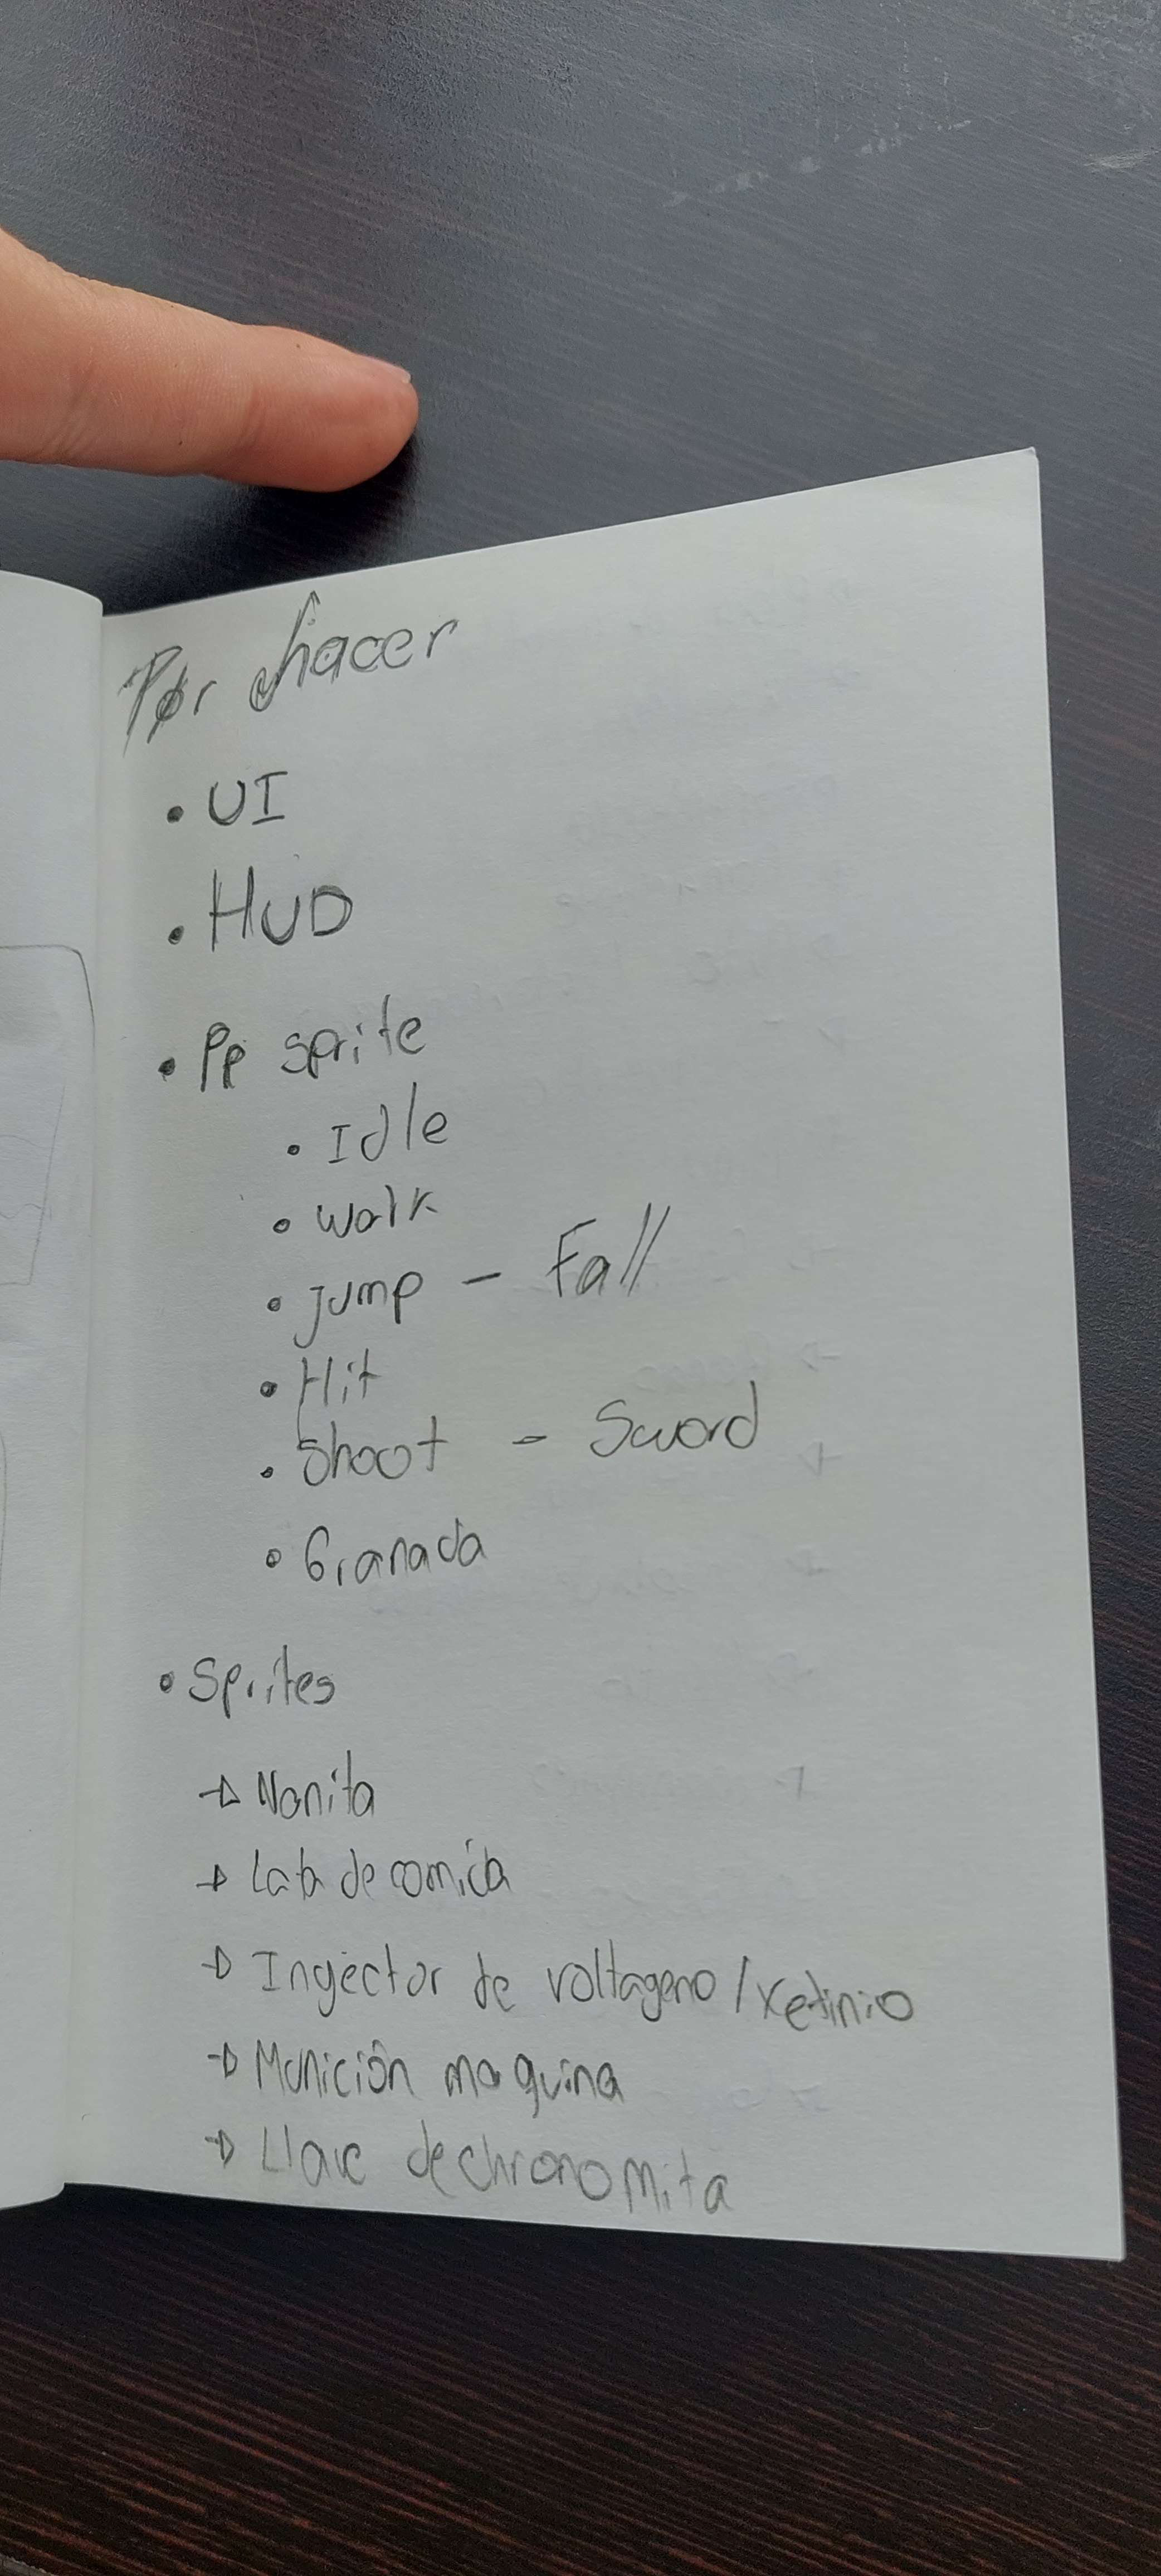 Por hacer
• UI
• HUD
• Pp sprite
• Idle
• walk
• jump - Fall
• Hit
• Shoot - Sword
• Granada
• Sprites
→ Nanita
→ Lata de comida
→ Ingector de voltageno / xetinio
→ Munición maquina
→ Llave de chronomita